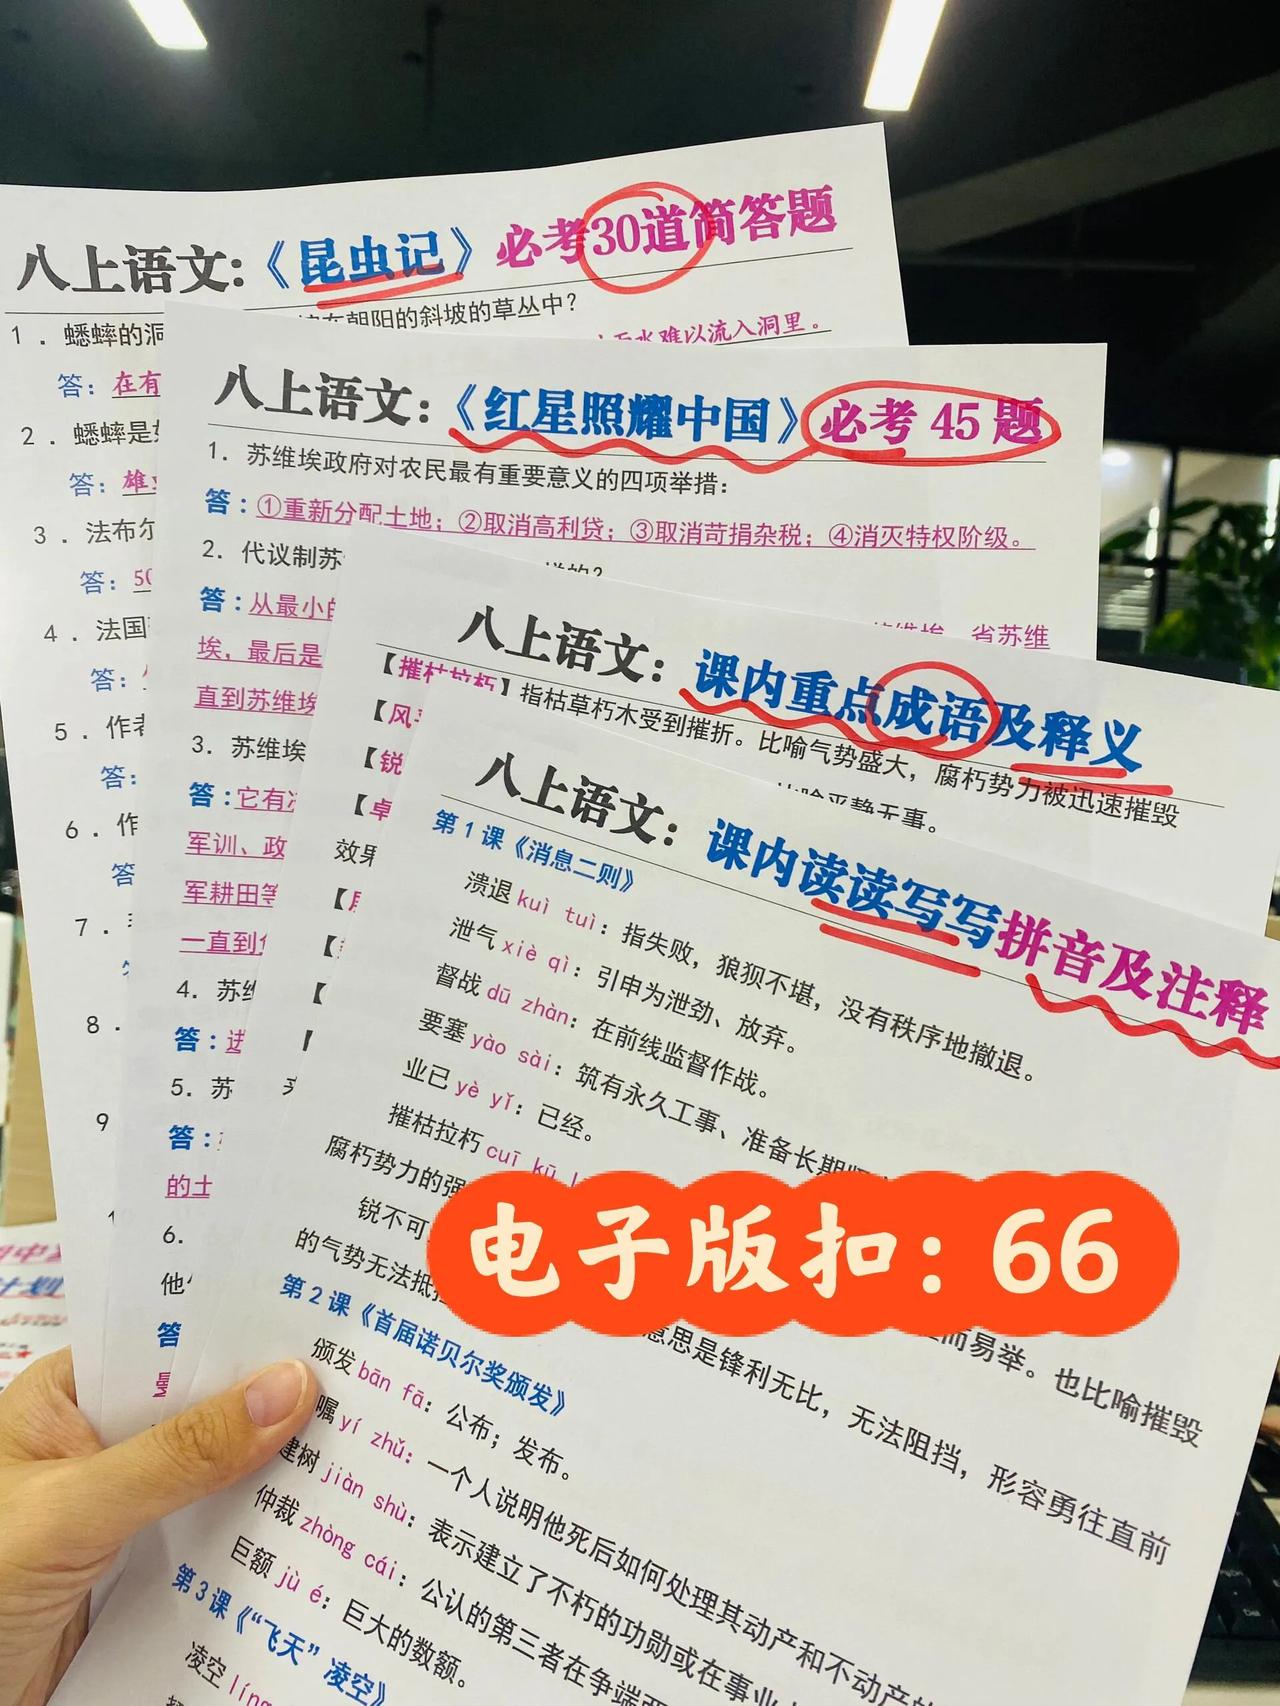 八上语文:《昆虫记》必考30道简答题
1．蟋蟀的洞
在朝阳的斜坡的草丛中?
水难以流入洞里。
答: 在有
2．蟋蟀是
答: 雄
3．法布尔
答: 50
4．法国
答:
5．作者
答:
6．作
答
7．
8．
9
八上语文:《红星照耀中国》必考 45 题
1. 苏维埃政府对农民最有重要意义的四项举措:
答:①重新分配土地; ②取消高利贷; ③取消苛捐杂税; ④消灭特权阶级。
2. 代议制苏
样的?
答:从最小的
维埃、省苏维
埃，最后是
直到苏维埃
3. 苏维埃
答:它有
军训、政
军耕田等
一直到
4. 苏维
答:
5. 苏
答:
的土
6.
他
答
八上语文: 课内重点成语及释义
【摧枯拉朽】指枯草朽木受到摧折。比喻气势盛大，腐朽势力被迅速摧毁
【风平
比喻平静无事。
【锐
【卓
效果
八上语文: 课内读读写写拼音及注释
第 1 课《消息二则》
溃退 kuì tuì: 指失败，狼狈不堪，没有秩序地撤退。
泄气 xiè qì: 引申为泄劲、放弃。
督战 dū zhàn: 在前线监督作战。
要塞 yào sài: 筑有永久工事、准备长期
业已 yè yǐ: 已经。
摧枯拉朽 cuī kū
腐朽势力的强
而易举。也比喻摧毁
锐不可
意思是锋利无比，无法阻挡，形容勇往直前
的气势无法抵挡
电子版扣: 66
第 2 课《首届诺贝尔奖颁发》
颁发 bān fā: 公布; 发布。
嘱 yí zhǔ: 一个人说明他死后如何处理其动产和不动产的
建树 jiàn shù: 表示建立了不朽的功勋或在事业
仲裁 zhòng cái: 公认的第三者在争端两
巨额 jù é: 巨大的数额。
第 3 课《“飞天”凌空》
凌空 líng